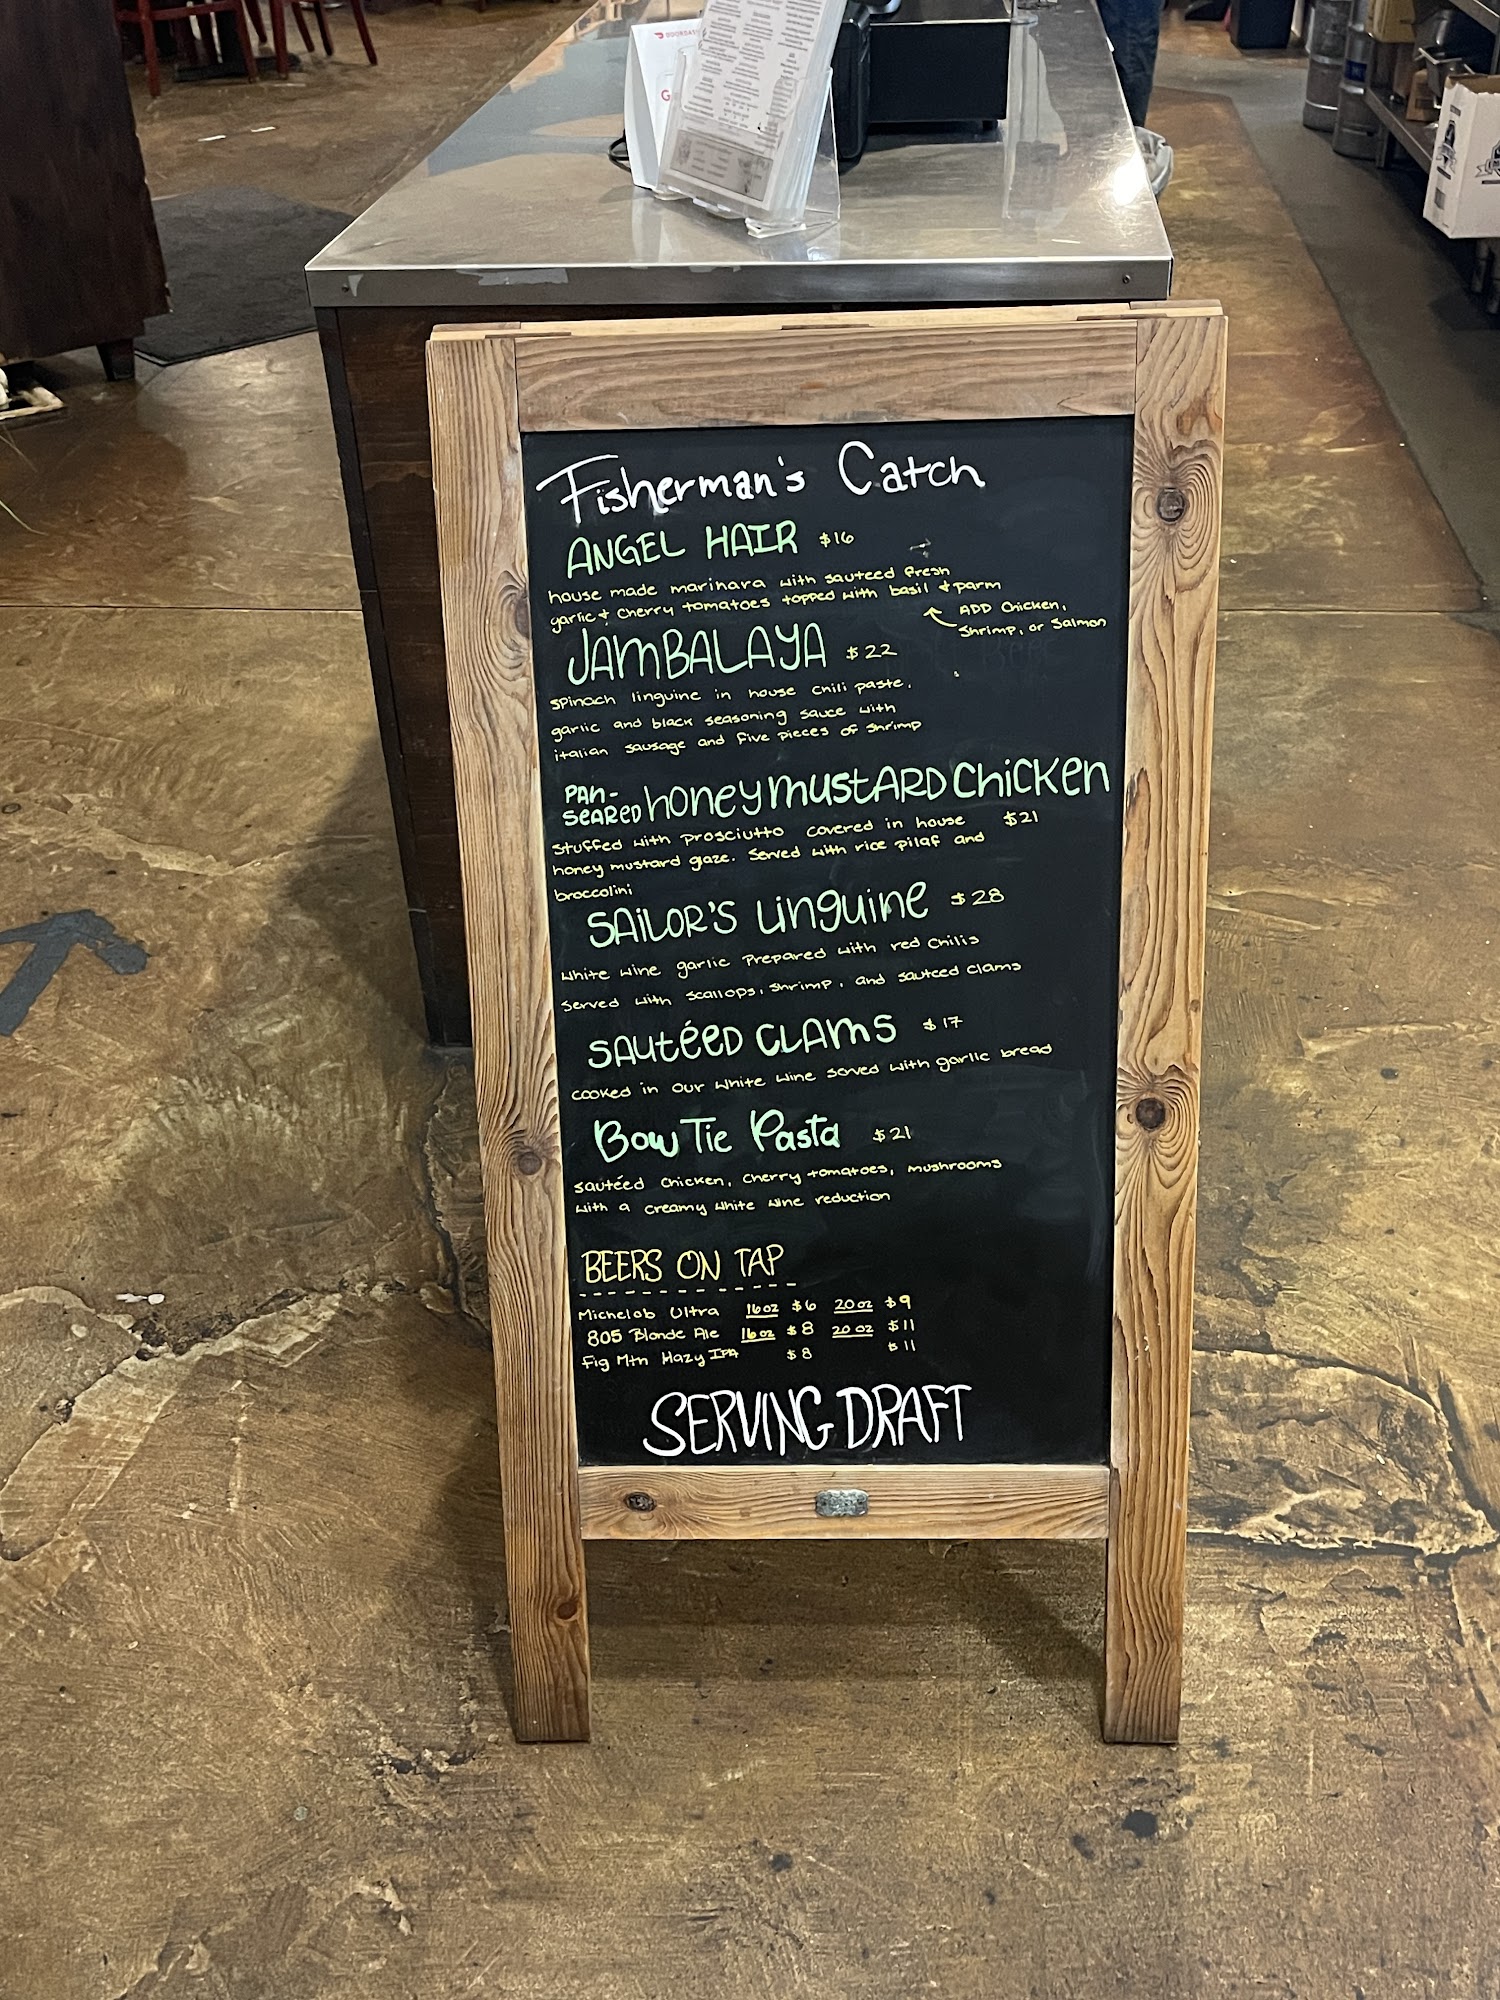 DOORDASH
Fisherman's Catch
ANGEL HAIR $16
house made marinara with sauteed fresh
garlic & cherry tomatoes topped with basil & parm
ADD Chicken,
Shrimp, or Salmon
JAMBALAYA $22
spinach linguine in house chili paste,
garlic and black seasoning sauce with
italian sausage and five pieces of shrimp
PAN-
SEARED honey mustARD chicken
stuffed with prosciutto covered in house $21
honey mustard glaze. Served with rice pilaf and
broccolini
SAILOR'S Linguine $28
white wine garlic prepared with red chilis
served with scallops, shrimp, and sauteed clams
SAUtéeD CLAMS $17
cooked in our white wine served with garlic bread
Bow Tie Pasta $21
sautéed chicken, cherry tomatoes, mushrooms
with a creamy white wine reduction
BEERS ON TAP
Michelob Ultra 16oz $6 20oz $9
805 Blonde Ale 16oz $8 20oz $11
Fig Mtn Hazy IPA $8 $11
SERVING DRAFT